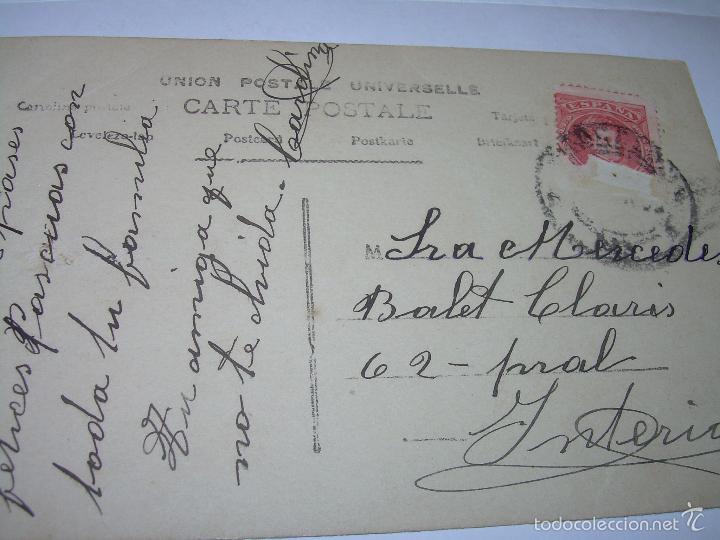 UNION POSTALE UNIVERSELLE
CARTE POSTALE
Postcard
Postkarte
Tarjeta
ESPAÑA
pases
felices Pascuas con
toda tu familia
Tu amiga que
no te olvida.
M Sra Mercedes
Balet Claris
62-pral
Interior
todocoleccion.net